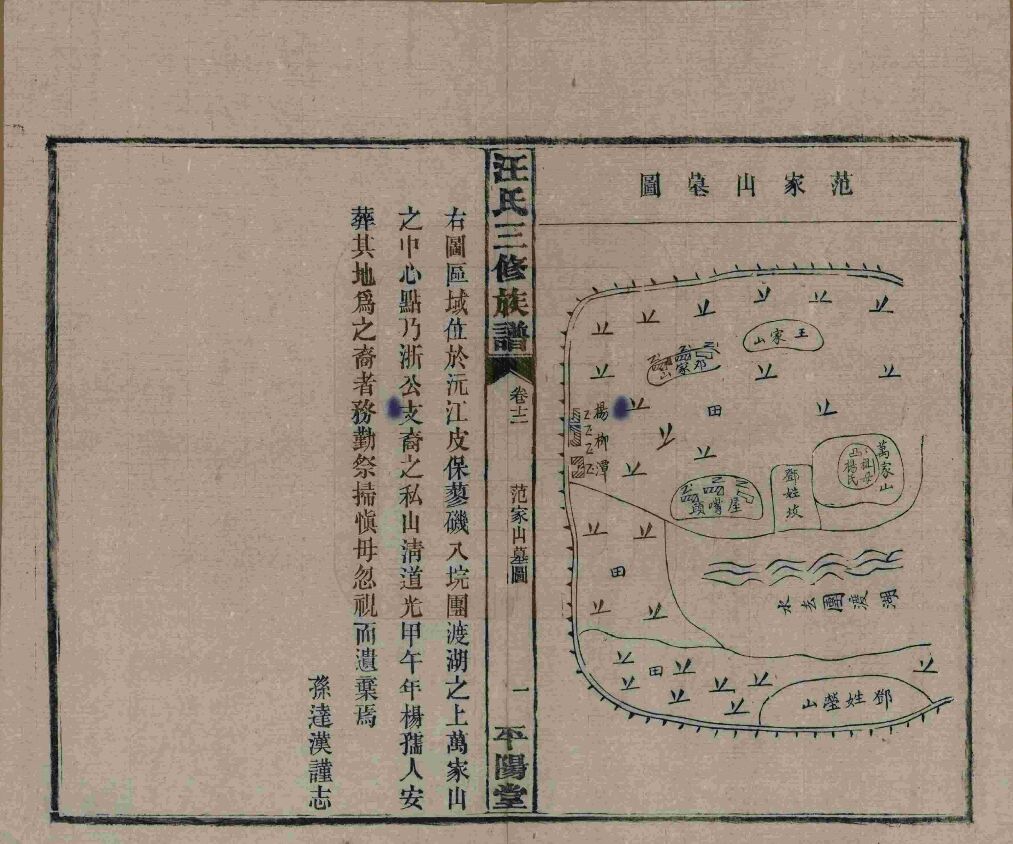 范家山墓圖
王家山
鄧家山
楊柳潭
田
萬家山
祖母
楊氏
鄧姓坟
屋嘴頭
湖渡團去水
田
田
鄧姓塋山
汪氏三修族譜
卷十二
范家山墓圖
一
平陽堂
右圖區域位於沅江皮保蓼磯入垸團渡湖之上萬家山
之中心點乃浙公支裔之私山清道光甲午年楊孺人安
葬其地為之裔者務勤祭掃慎毋忽視而遺棄焉
孫達漢謹志